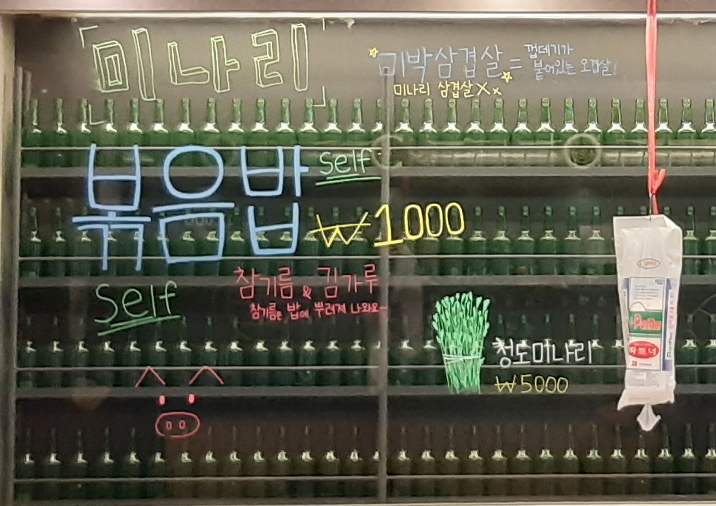 「미나리」
미박삼겹살 =
껍데기가
붙어있는 오겹살!
미나리 삼겹살 X x
볶음밥 self
₩1000
Self
참기름 & 김가루
참기름은 밥에 뿌려져 나와요~
청도미나리
₩5000
파트너